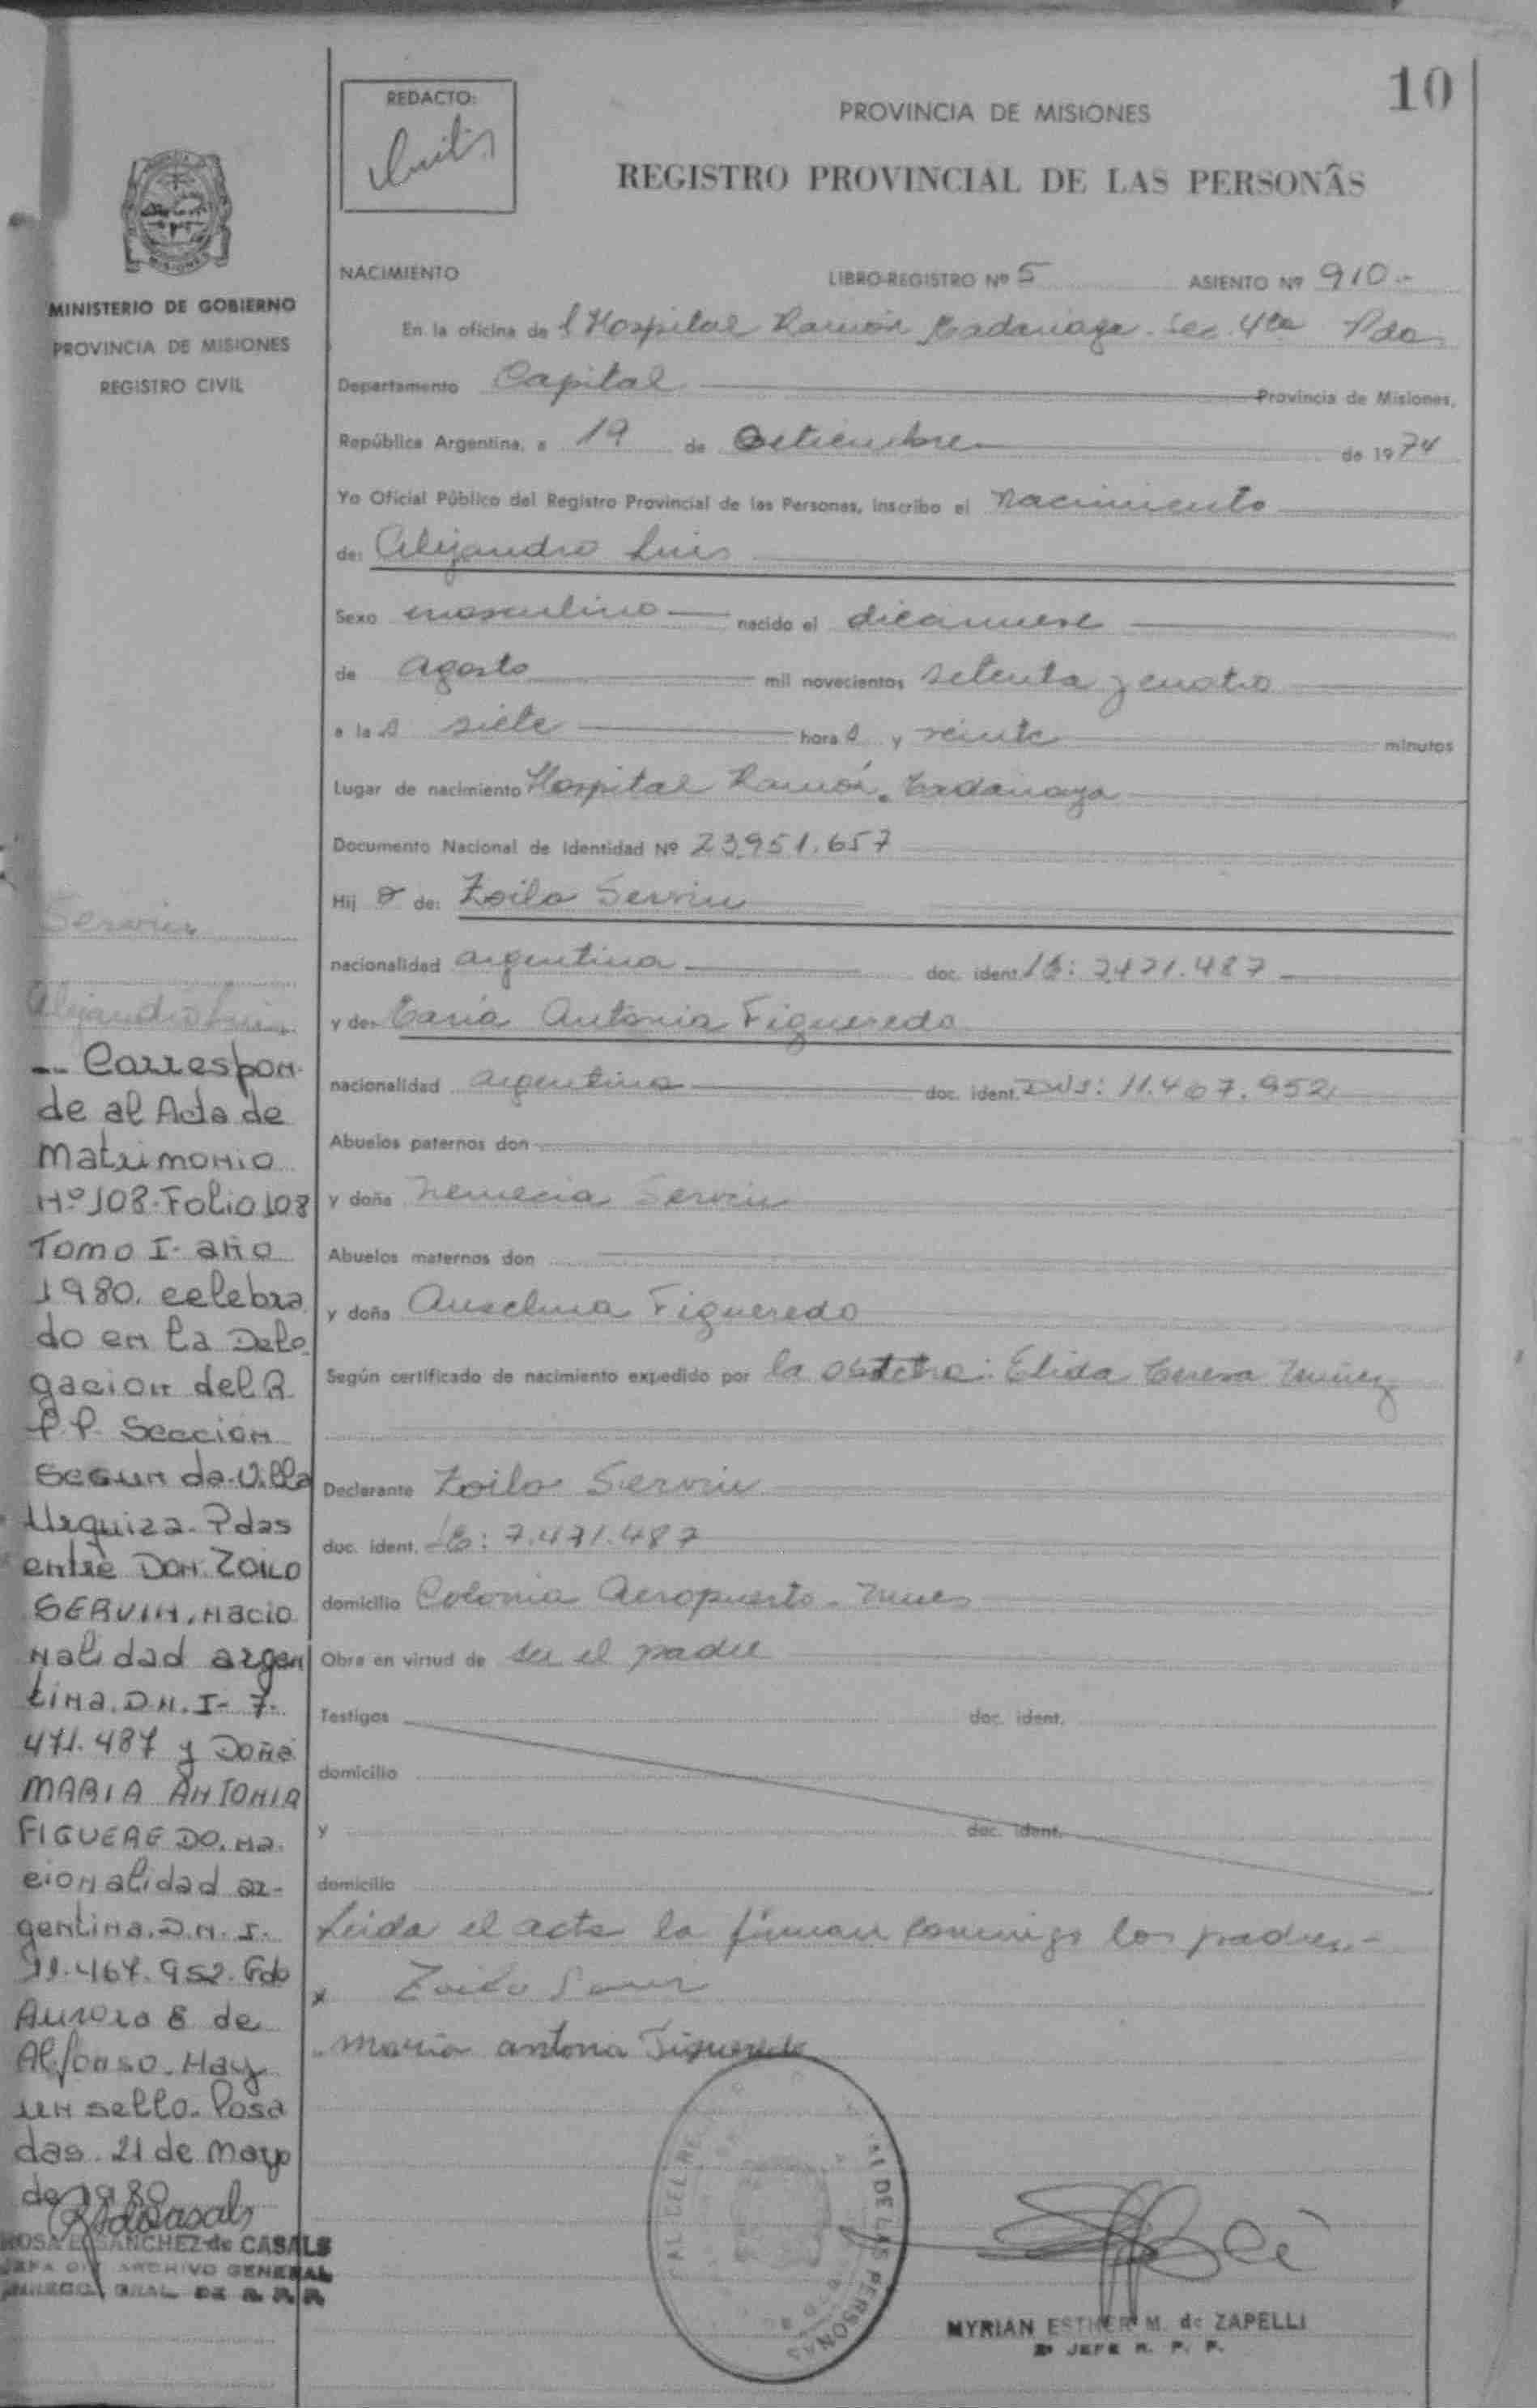 10
REDACTO:
PROVINCIA DE MISIONES
REGISTRO PROVINCIAL DE LAS PERSONAS
MISIONES
MINISTERIO DE GOBIERNO
PROVINCIA DE MISIONES
REGISTRO CIVIL
NACIMIENTO LIBRO-REGISTRO Nº 5 ASIENTO Nº 910.-
En la oficina de l Hospital Ramón Madariaga. Sec. 4ta Pdas
Departamento Capital Provincia de Misiones,
República Argentina, a 19 de Setiembre de 1974
Yo Oficial Público del Registro Provincial de las Personas, inscribo el Nacimiento
de: Alejandro Luis
Sexo masculino nacido el diecinueve
de agosto mil novecientos setenta y cuatro
a las siete horas y veinte minutos
Lugar de nacimiento Hospital Ramón Madariaga
Documento Nacional de Identidad Nº 23.951.657
Hijo de: Zoilo Servin
nacionalidad argentina doc. ident. LE: 7.471.487
y de: María Antonia Figueredo
nacionalidad argentina doc. ident. DNI: 11.467.952
Abuelos paternos don
y doña Nemecia Servin
Abuelos maternos don
y doña Anselma Figueredo
Según certificado de nacimiento expedido por la obstetra: Elida Teresa Nuñez
Declarante Zoilo Servin
doc. ident. LE: 7.471.487
domicilio Colonia Aeropuerto - Mnes
Obra en virtud de ser el padre
Testigos doc. ident.
domicilio
y doc. ident.
domicilio
Leida el acta la firman conmigo los padres.-
x Zoilo Servin
Maria antona Figueredo
MYRIAN ESTHER M. de ZAPELLI
2º JEFE R. P. P.
DE LAS PERSONAS
Servin
Alejandro Luis
-- Correspon-
de al Acta de
Matrimonio
Nº 108-Folio 108
Tomo I- año
1980. celebra
do en la Dele
gacion del R.
P.P. Sección
Segunda-Villa
Urquiza. Pdas
entre Don. ZOILO
SERVIN, nacio
nalidad argen
tina. D.N.I- 7.
471.487 y Doña
MARIA ANTONIA
FIGUEREDO. na
cionalidad ar-
gentina. D.N.I.
11.467.952. Fdo
Aurora B de
Alfonso. Hay
un sello. Posa
das. 21 de Mayo
de 1980
ROSA E. SANCHEZ de CASALS
JEFA DIV ARCHIVO GENERAL
DIRECC. GRAL DE R. P. P.